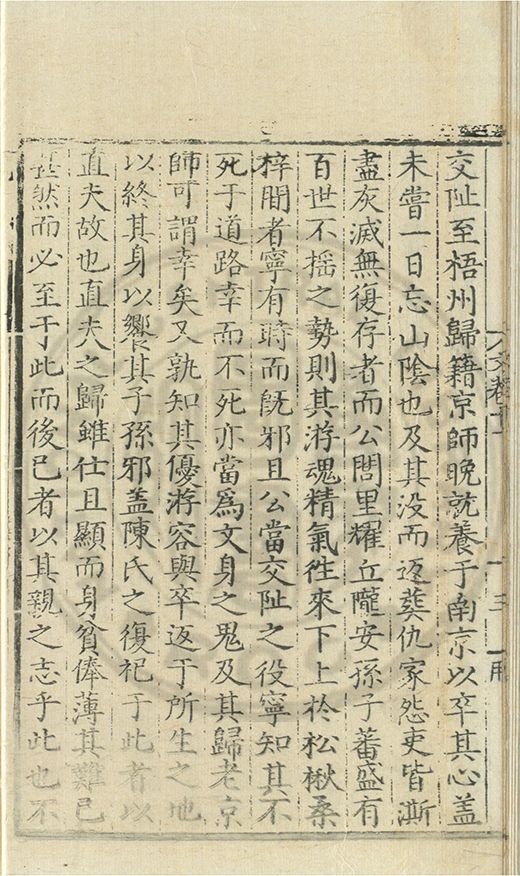 交阯至梧州歸籍京師晚就養于南京以卒其心盖
未嘗一日忘山陰也及其没而返葬仇家怨吏皆澌
盡灰滅無復存者而公閭里耀丘隴安孫子蕃盛有
百世不揺之勢則其游魂精氣徃來下上於松楸桑
梓間者寧有時而旣邪且公當交阯之役寧知其不
死于道路幸而不死亦當爲文身之鬼及其歸老京
師可謂幸矣又孰知其優游容與卒返于所生之地
以終其身以饗其子孫邪盖陳氏之復祀于此者以
直夫故也直夫之歸雖仕且顯而身貧俸薄其難已
甚然而必至于此而後已者以其親之志乎此也不
文卷十
三